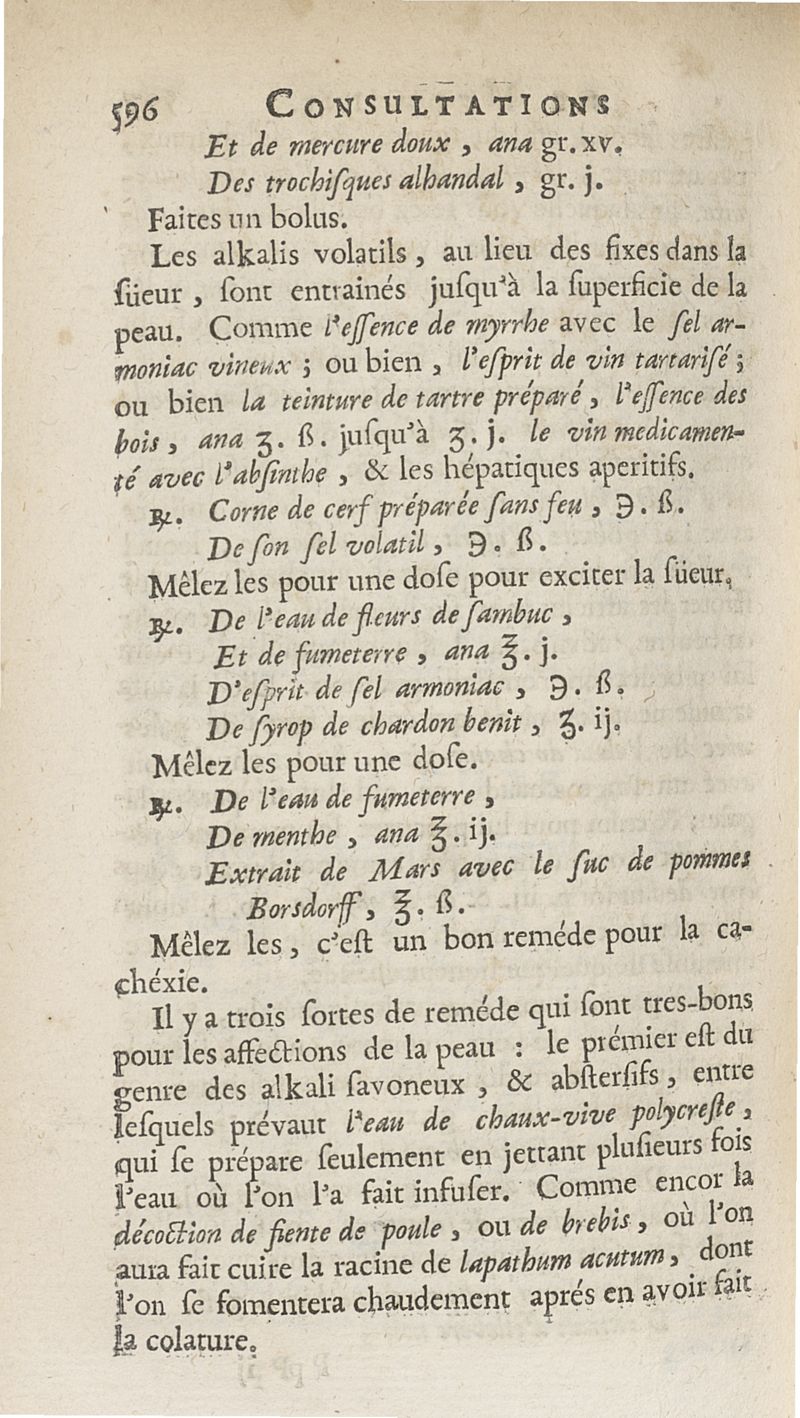 596 CONSULTATIONS
Et de mercure doux , ana gr. xv.
Des trochiſques alhandal , gr. j.
Faites un bolus.
Les alkalis volatils , au lieu des fixes dans la
ſüeur , ſont entrainés juſqu'à la ſuperficie de la
peau. Comme l'eſſence de myrrhe avec le ſel ar-
moniac vineux ; ou bien , l'eſprit de vin tartariſé ;
ou bien la teinture de tartre préparé , l'eſſence des
bois , ana ʒ. ß. juſqu'à ʒ. j. le vin medicamen-
té avec l'abſinthe , & les hépatiques aperitifs.
℞. Corne de cerf préparée ſans feu , ℈. ß.
De ſon ſel volatil , ℈. ß.
Mêlez les pour une doſe pour exciter la ſüeur.
℞. De l'eau de fleurs de ſambuc ,
Et de fumeterre , ana ℥. j.
D'eſprit de ſel armoniac , ℈. ß.
De ſyrop de chardon benit , ʒ. ij.
Mêlez les pour une doſe.
℞. De l'eau de fumeterre ,
De menthe , ana ℥. ij.
Extrait de Mars avec le ſuc de pommes
Borsdorff , ℥. ß.
Mêlez les , c'eſt un bon reméde pour la ca-
chéxie.
Il y a trois ſortes de reméde qui ſont tres-bons
pour les affections de la peau : le prémier eſt du
genre des alkali ſavoneux , & abſterſifs , entre
leſquels prévaut l'eau de chaux-vive polycreſte ,
qui ſe prépare ſeulement en jettant pluſieurs fois
l'eau où l'on l'a fait infuſer. Comme encor la
décoction de fiente de poule , ou de brebis , où l'on
aura fait cuire la racine de lapathum acutum , dont
l'on ſe fomentera chaudement aprés en avoir fait
la colature.